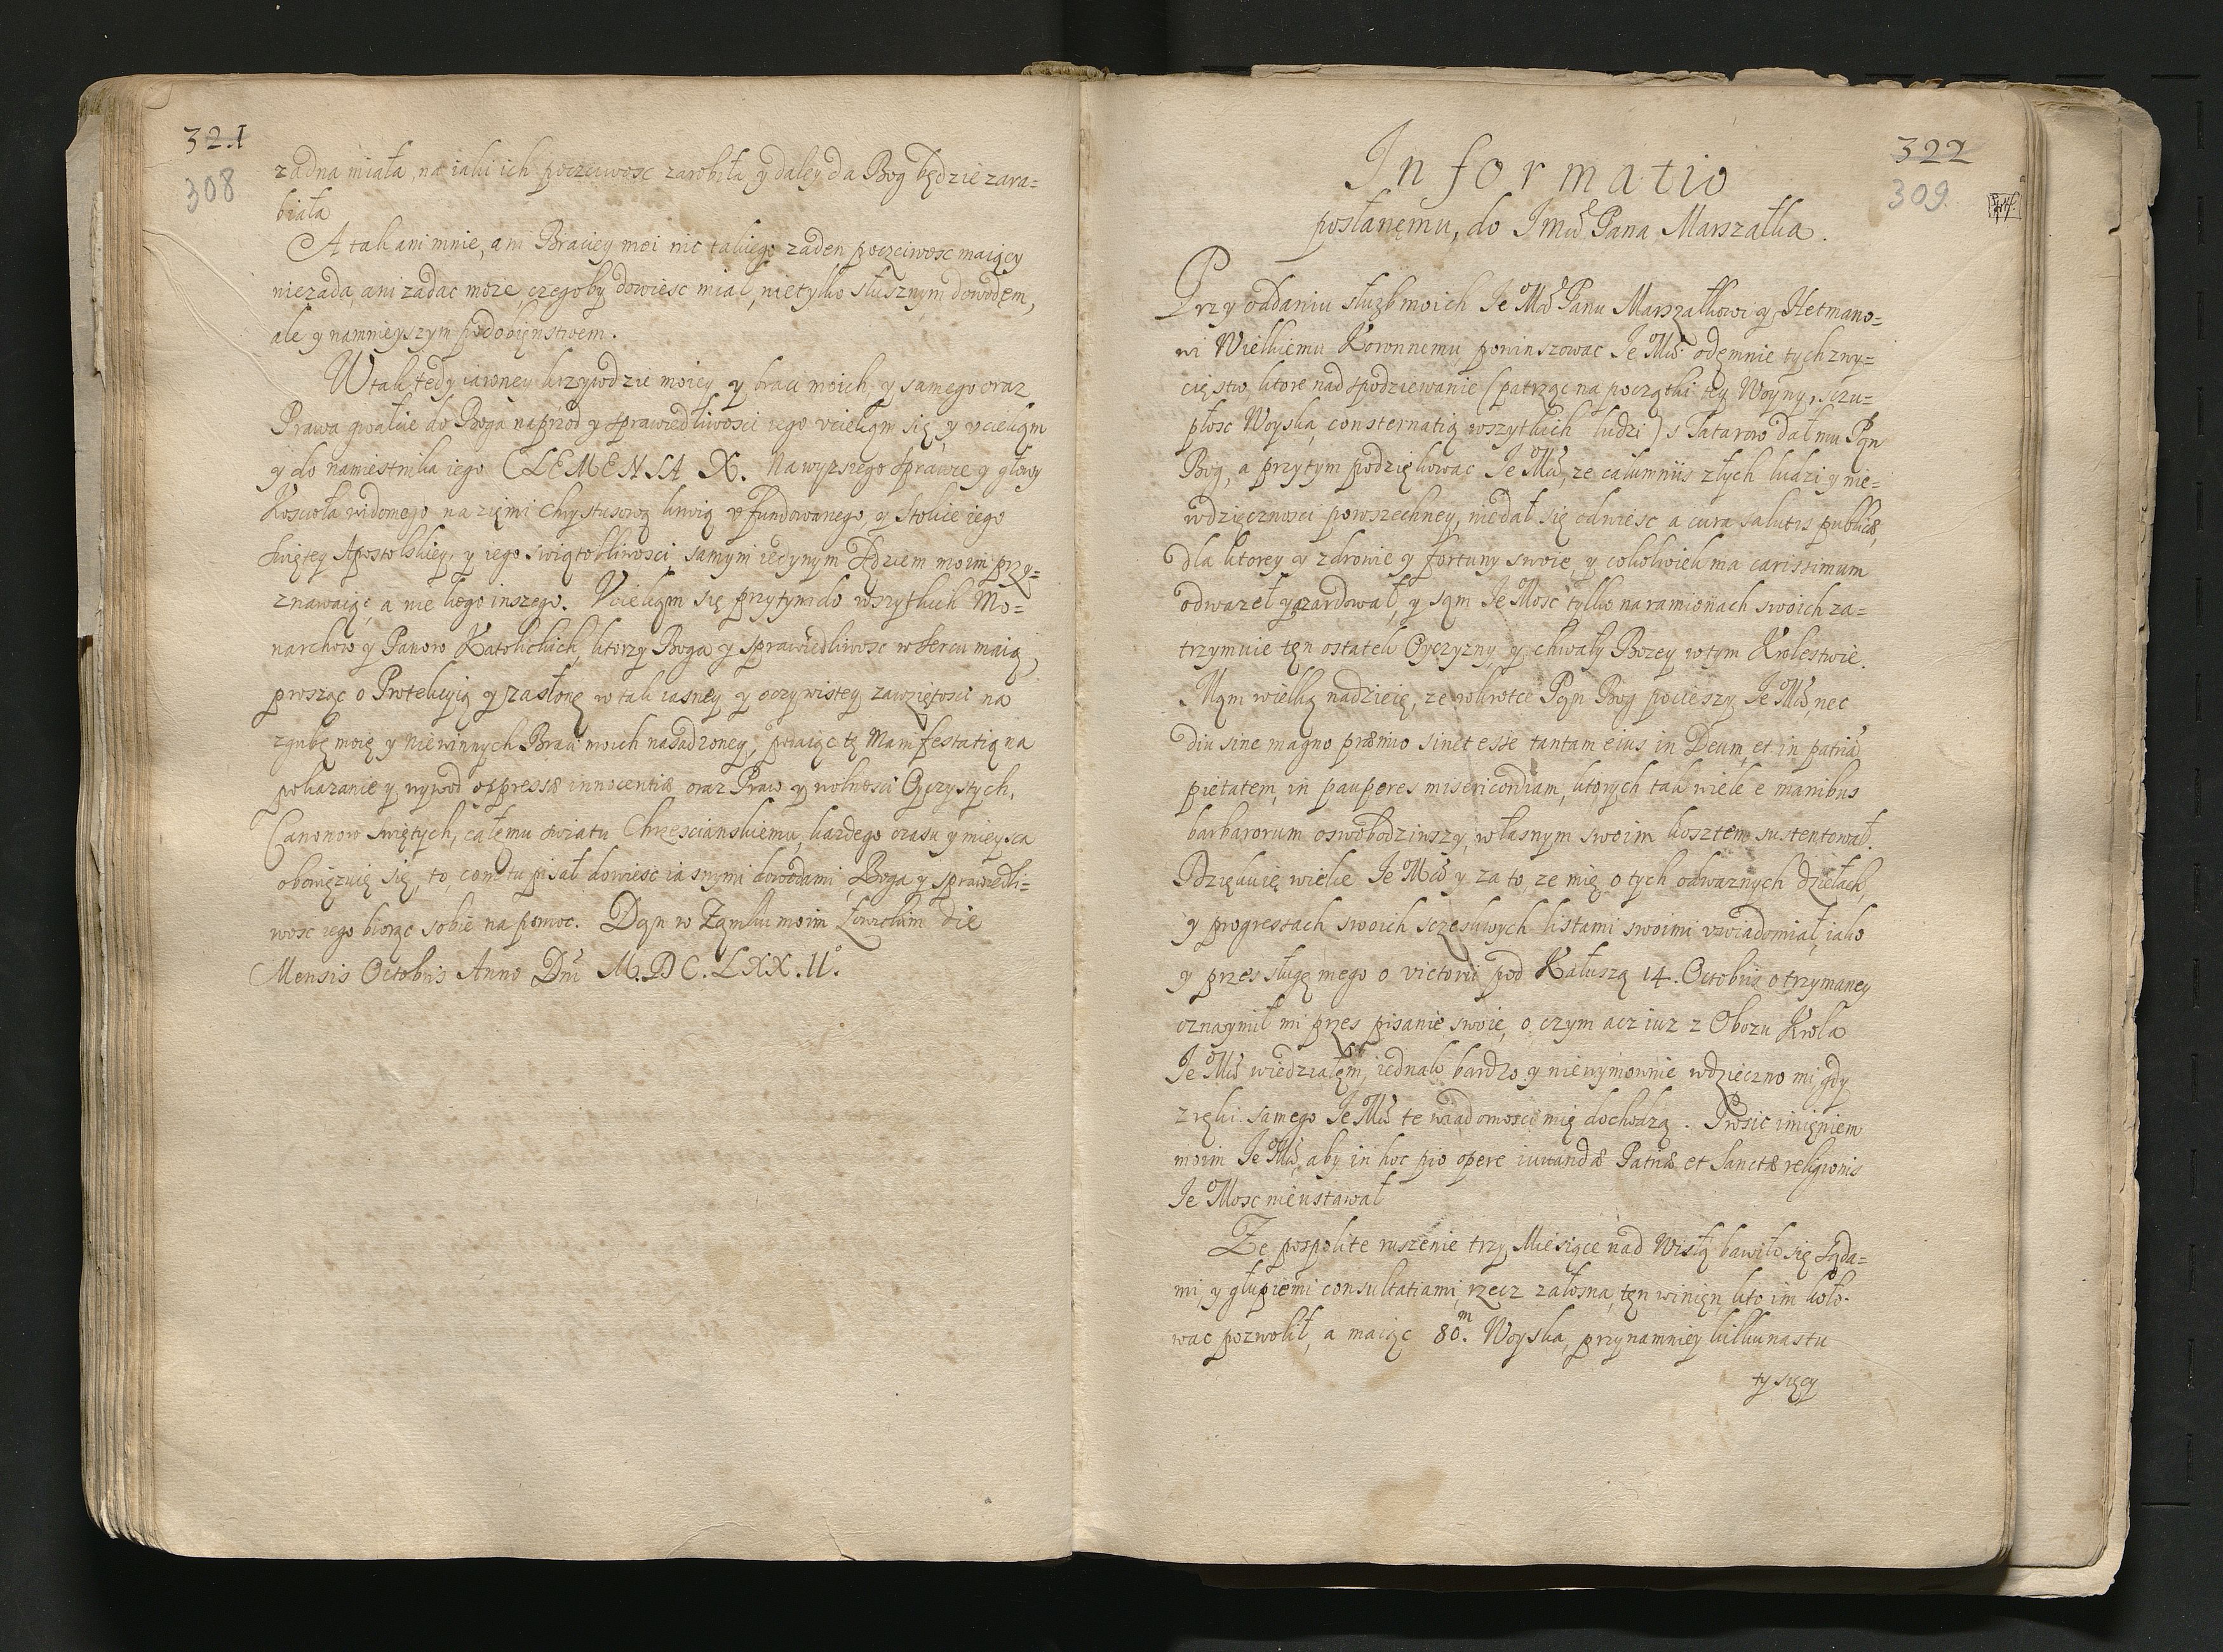 321
308
zadna miała, na iaki ich poczciwosc zarobiła y daley da Bog będzie zara=
biała
A tak ani mnie, ani Braciey mei nic takiego zaden poczciwosc maiący
niezada, ani zadac moze, czegoby dowiesc miał, nietylko słusznym dowodem,
ale y namnieyszym podobięnstwem.
W tak tedy iawney krzywdzie moiey y braci moich, y samego oraz
Prawa gwałcie do Boga naprzod y sprawiedliwosci iego vciekąm się, y vciekąm
y do namiestnika iego CLEMENSA X. Nawyzszego Sprawcę y głowy
Koscioła widomego na zięmi Chrystusową krwią vfundowanego, y Stolice iego
Swiętey Apostolskiey, y iego swiątobliwosci, samym iedynym Sędziem moim przy=
znawaiąc, a nie kogo inszego. Vciekąm się przytym do wszytkich Mo=
narchow y Panow Katolickich, ktorzy Boga y sprawiedliwosc w Sercu maią,
prosząc o Protekcyią y zasłonę w tak iasney y oczywistey zawziętosci na
zgubę moię y niewinnych Braci moich nasadzoney, podaiąc tę Manifestatią na
pokazanie y wywod oppressæ innocentiæ oraz Praw y wolnosci Oyczystych,
Canonow Swiętych, całemu swiatu Chrzescianskiemu, kazdego czasu y mieysca
obowięzuię się, to, com tu pisał dowiesc iasnymi dowodami, Boga y sprawiedli=
wosc iego biorąc sobie na pomoc. Dąn w Zamku moim Łowickim die
Mensis Octobris Anno Dni M.DC.LXX.II.
322
309
Informatio
posłanemu, do JMći Pana Marszałka.
Przy oddaniu słuzb moich Je Mći Panu Marszałkowi y Hetmano=
wi Wielkiemu Koronnemu, powinszowac Je Mći odemnie tych zwy=
cięstw, ktore nad spodziewanie (patrząc na początki tey Woyny, szczu=
płosc Woyska, consternatią wszytkich ludzi) s Tatarow dał mu Pąn
Bog, a przytym podziękowac Je Mći, ze calumniis złych ludzi y nie=
wdzięcznosci powszechney, niedał się odwiesc a cura salutis publicæ,
dla ktorey y zdrowie y fortuny swoie, y cokolwiek ma carissimum
odwazył y azardował, y sąm Je Mosc tylko na ramionach swoich za=
trzymuie tęn ostatek Oyczyzny, y chwały Bozey w tym Krolestwie.
Mąm wielką nadzieię, ze wkrotce Pąn Bog pocieszy Je Mći, nec
diu sine magno præmio sinet esse tantam eius in Deum, et in patriã
pietatem, in pauperes misericordiam, ktorych tak wiele e manibus
barbarorum oswobodziwszy, własnym swoim kosztem sustentował.
Dziękuię wielce Je Mći y za to, ze mię, o tych odwaznych dziełach,
y progressach swoich szczesliwych listami swoimi vwiadomiał, iako
y przes sługę mego o victorii pod Kałuszą 14. Octobris otrzymaney
oznaymił mi przes pisanie swoie, o czym acz iuz z Obozu Krola
Je Mći wiedziałem, iednak bardzo y niewymownie wdzieczno mi, gdy
z ręki samego Je Mći te wiadomosci mię dochodzą. Prosic imięniem
moim Je Mći, aby in hoc pio opere iuvandæ Patriæ, et Sanctæ religionis
Je Mosc nieustawał
Ze pospolite ruszenie trzy Miesiące nad Wisłą bawiło się Sąda=
mi, y głupiemi consultatiami, rzecz załosna, tęn winięn, kto im koło=
wac pozwolił, a maiąc 80.m Woyska, przynamniey kilkunastu
tysięcy